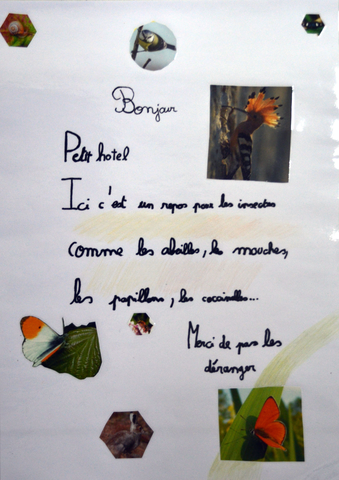 Bonjour
Petit hotel
Ici c'est un repos pour les insectes
comme les abeilles, les mouches,
les papillons, les coccinelles...
Merci de pas les
déranger